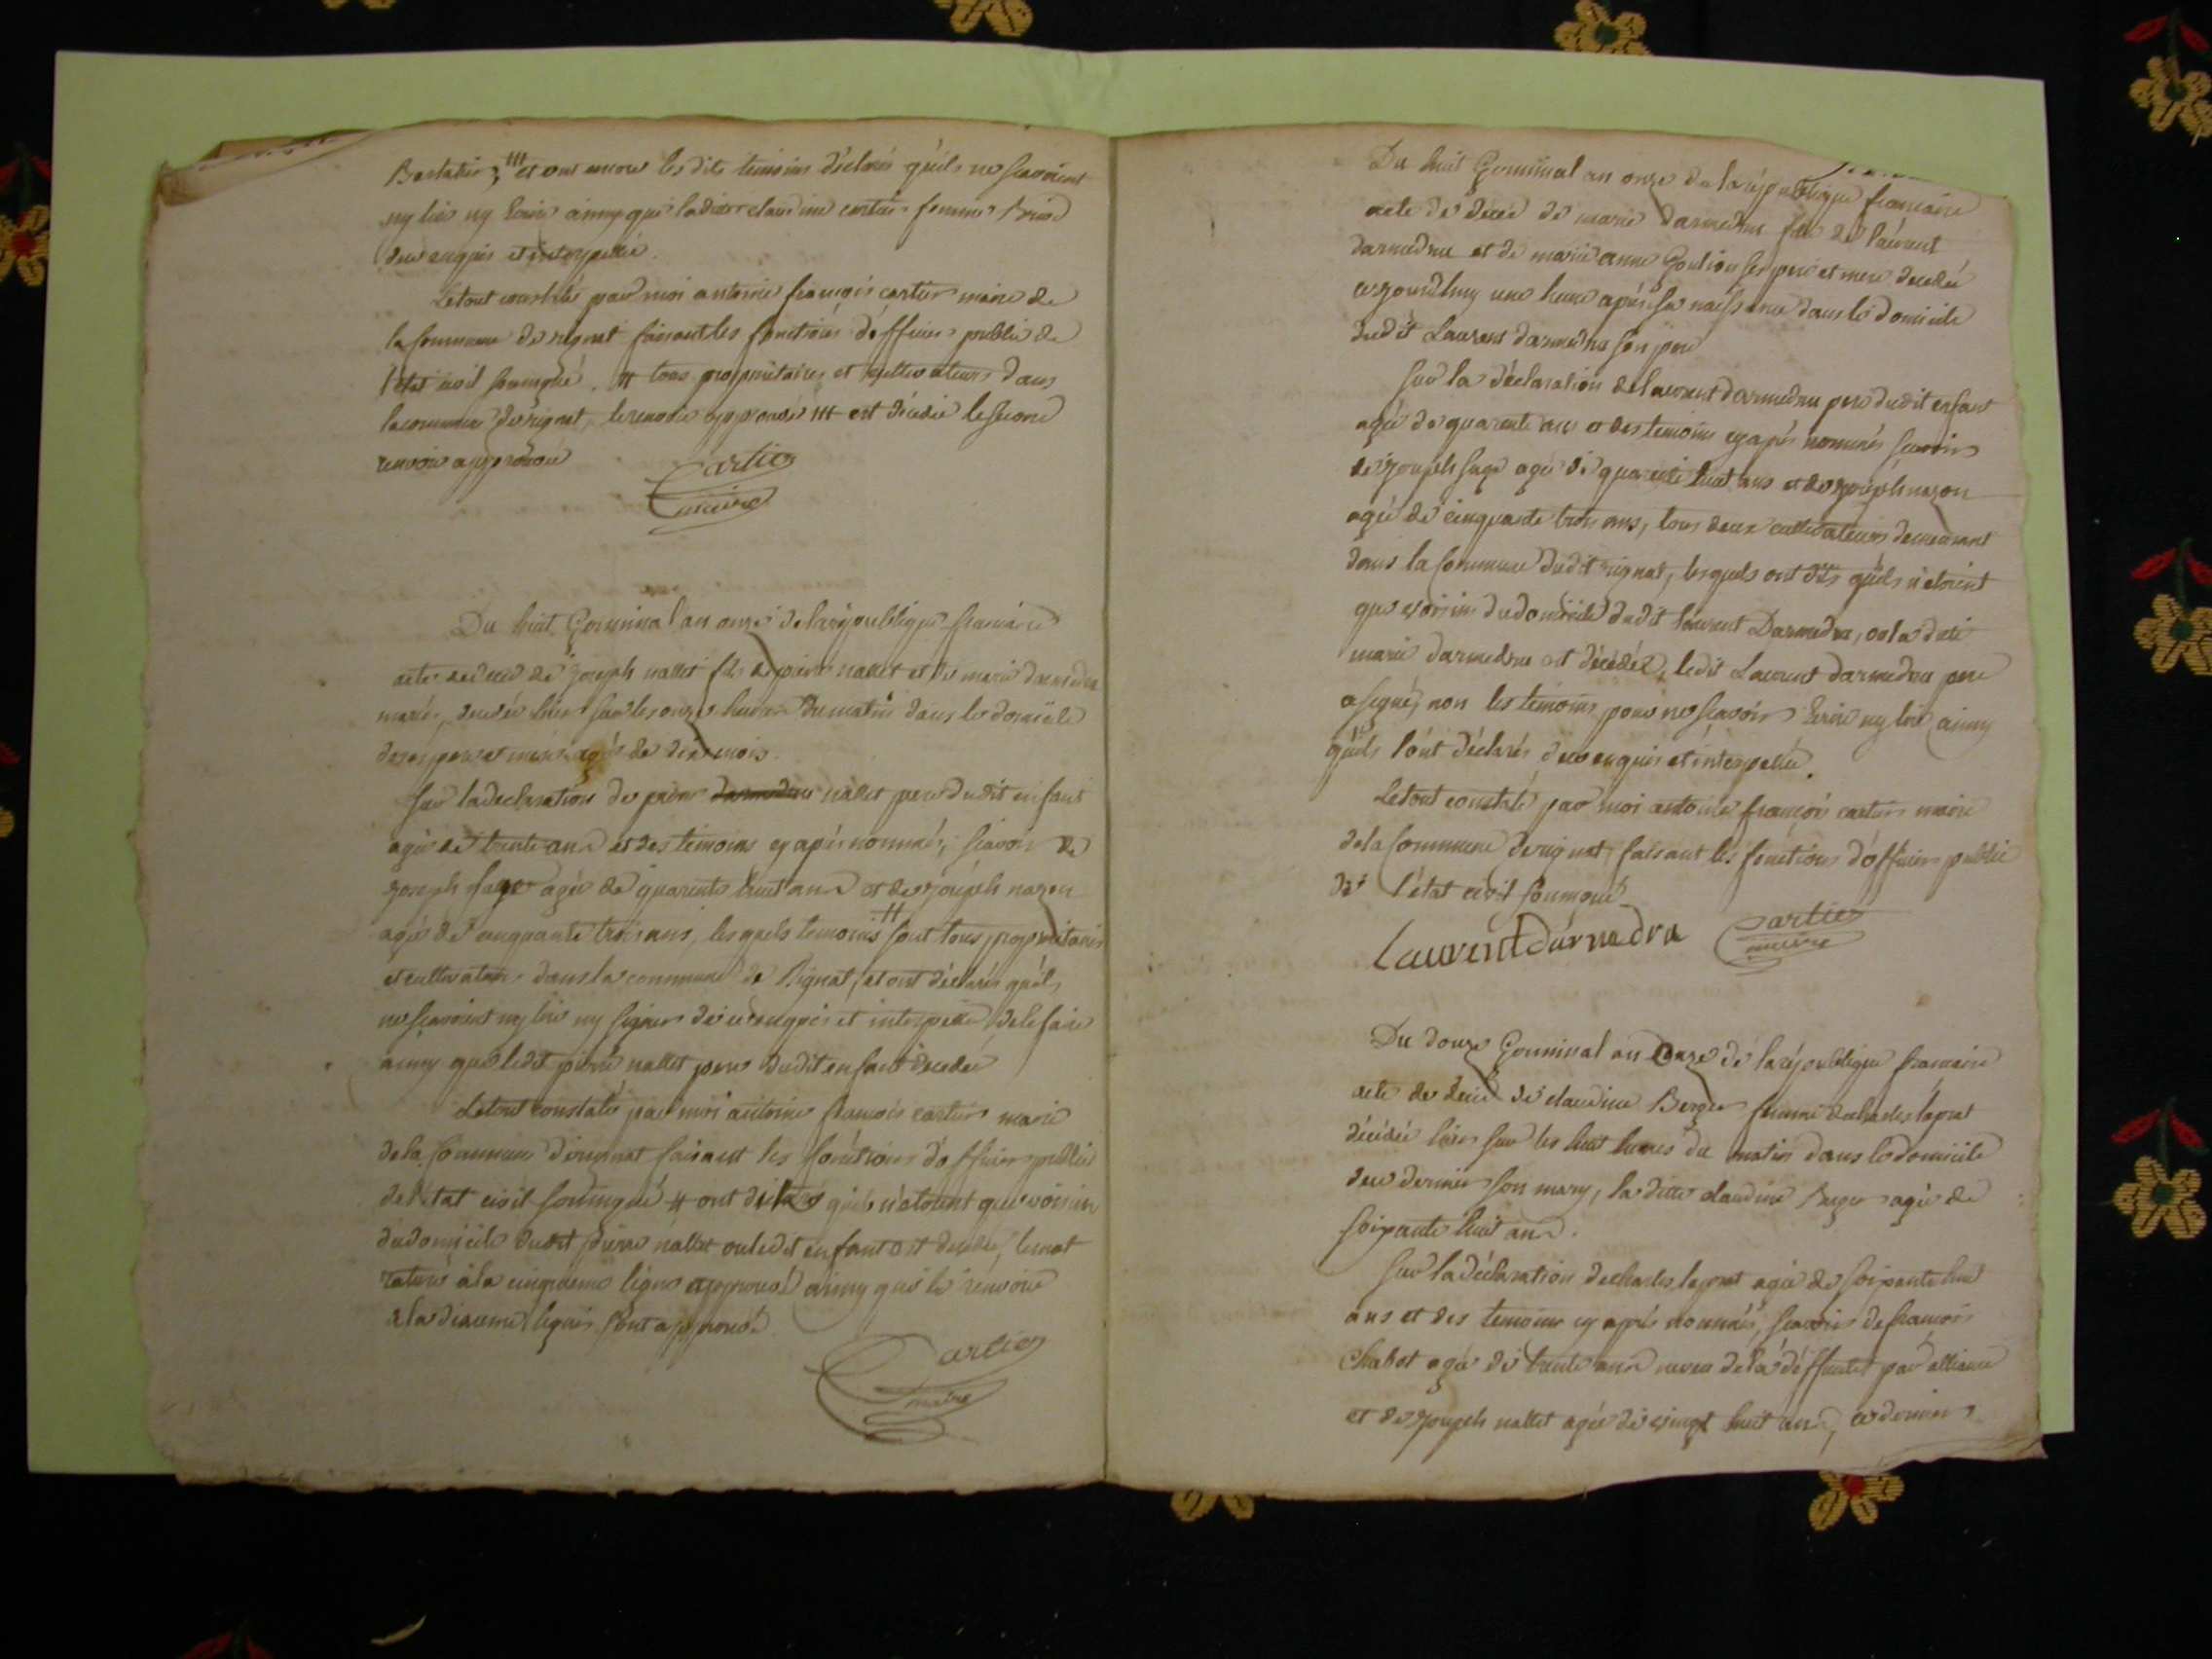 et ont encore les dits temoins déclarés qu'ils ne scavoient
ny lire ny écrire ainsy que laditte claudine cartier femme
de ce enquis et interpellé.
Letout constaté par moi antoine françois cartier maire de
la commune de rignat faisant les fonctions d'officier public de
l'état civil soussigné. # tous propriétaires et cultivateurs dans
la commune de rignat, le renvoie approuvé ### est décédé le second
renvoie approuvé
Cartier
maire
Du huit Germinal an onze de la république francaise
acte de deces de joseph nallet fils de pierre nallet et de marie darmedru
mariés, decedé hier sur les onze heures du matin dans le domicile
de ses pere et mere agé de dix mois.
Sur la declaration de pierre darmedru nallet pere dudit enfant
agé de trente ans et des temoins cy apés nommés, scavoir de
joseph sage agé de quarente huit ans et de joseph nazon
agé de cinquante trois ans, lesquels temoins # sont tous propriétaires
et cultivateurs dans la commune de Rignat, et ont déclarés qu'ils
ne scavoient ny lire ny signer de ce enquis et interpellé de le faire
ainsy que ledit pierre nallet pere dudit enfant decedé
Letout constaté par moi antoine francois cartier maire
de la commune de rignat faisant les fonctions d'officier public
de l'etat civil soussigné # ont déclarés qu'ils n'étoient que voisin
du domicile dudit pierre nallet ou ledit enfant est decedé, le mot
raturé à la cinquieme ligne approuvé ainsy que le renvoie
à la dixieme ligne sont approuvé.
Cartier
maire
Du huit Germinal an onze de la république francaise
acte de decé de marie darmedru fille de laurent
darmedru et de marie anne Goulion ses pere et mere decedée
cejourdhuy une heure apés sa naissance dans le domicile
dudit Laurent darmedru son pere
Sur la déclaration de laurent darmedru pere dudit enfant
agé de quarente ans et des temoins cy apés nommés scavoir
de joseph sage agé de quarente huit ans et de joseph nazon
agé de cinquante trois ans, tous deux cultivateurs demeurant
dans la commune dudit rignat, lesquels ont dits qu'ils n'étoient
que voisins du domicile dudit laurent Darmedru, ou la dite
marie darmedru est décédée, ledit Laurent darmedru pere
a signé, non les temoins pour ne scavoir écrire ny lire ainsy
qu'ils l'ont déclarés de ce enquis et interpellé.
Letout constaté par moi antoine françois cartier maire
de la commune de rignat faisant les fonctions d'officier public
de l'état civil soussigné
Laurent Darmedru
Cartier
maire
Du douze Germinal an Onze de la république francaise
acte de decè de claudine Berger femme de charles laprat
décédée hier sur les huit heures du matin dans le domicile
de ce dernier son mary, la ditte claudine Berger agée de
soixante huit ans.
Sur la déclaration de charles laprat agé de soixante huit
ans et des temoins cy après nommés, scavoir de francois
Chabot agé de trente ans neveu de la deffunte par alliance
et de joseph nallet agé de vingt huit ans, ce dernier